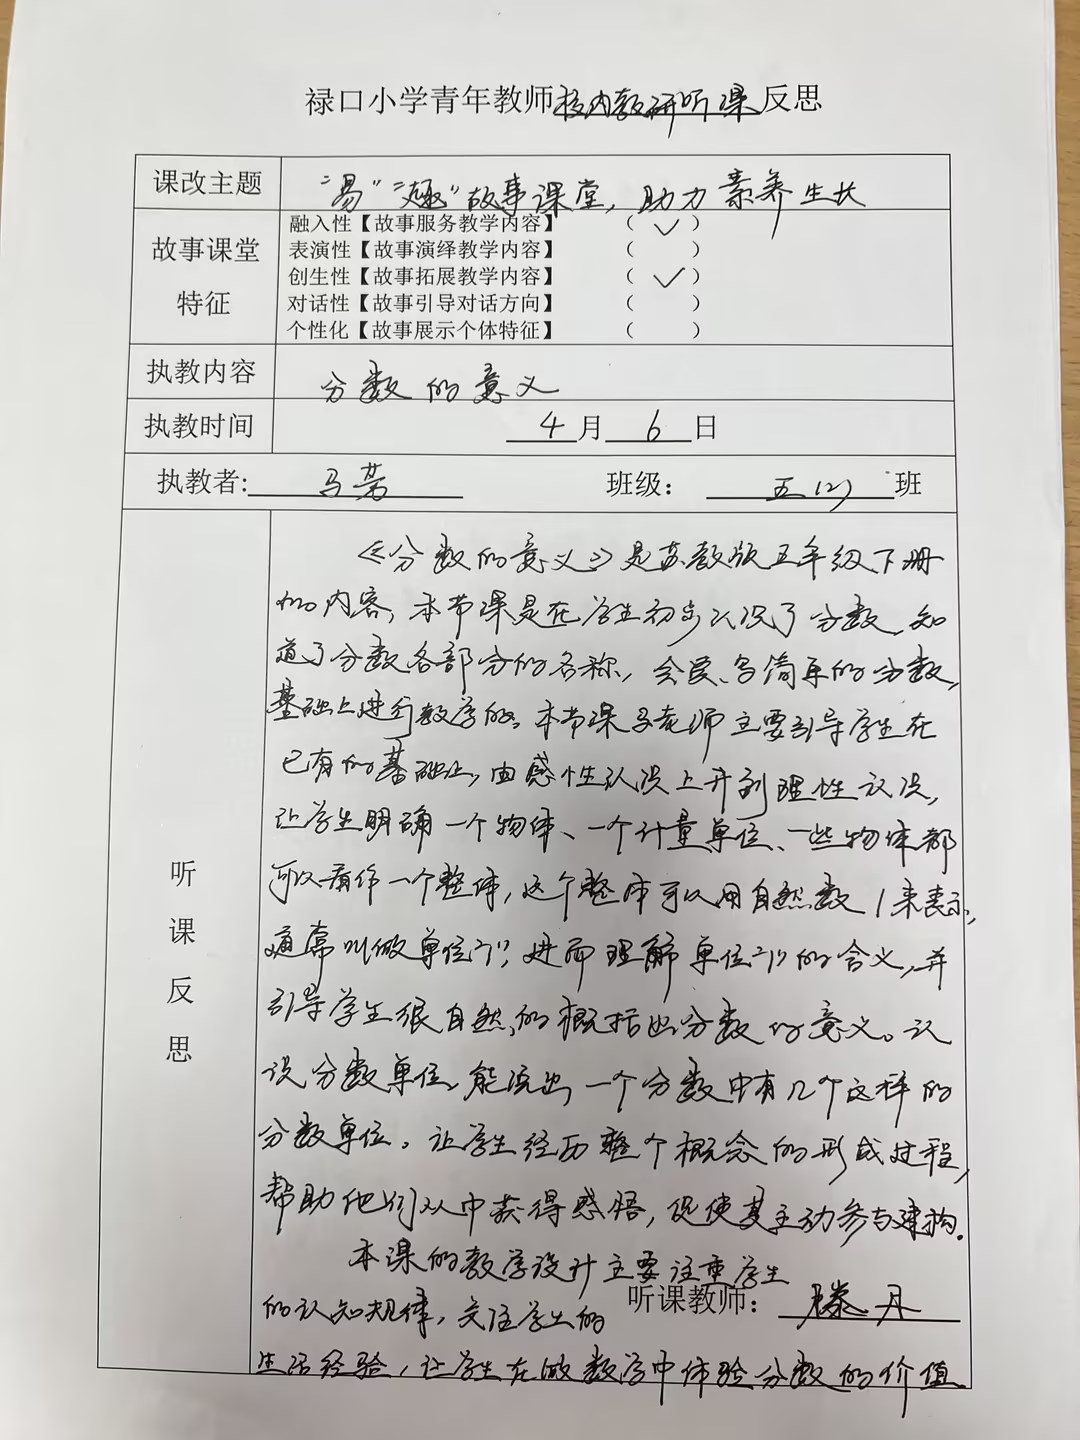 禄口小学青年教师校内教研听课反思
课改主题 “易”“趣”故事课堂，助力素养生长
故事课堂特征
融入性【故事服务教学内容】 （ ✓ ）
表演性【故事演绎教学内容】 （ ）
创生性【故事拓展教学内容】 （ ✓ ）
对话性【故事引导对话方向】 （ ）
个性化【故事展示个体特征】 （ ）
执教内容 分数的意义
执教时间 4月6日
执教者: 马芳 班级： 五(2)班
听课反思
《分数的意义》是苏教版五年级下册
的内容，本节课是在学生初步认识了分数，知
道了分数各部分的名称，会读、写简单的分数，
基础上进行教学的。本节课马老师主要引导学生在
已有的基础上，由感性认识上升到理性认识，
让学生明确一个物体、一个计量单位、一些物体都
可以看作一个整体，这个整体可以用自然数1来表示，
通常叫做单位“1”，进而理解单位“1”的含义，并
引导学生很自然的概括出分数的意义。认
识分数单位，能说出一个分数中有几个这样的
分数单位。让学生经历整个概念的形成过程，
帮助他们从中获得感悟，促使其主动参与建构。
本课的教学设计主要注重学生
的认知规律，关注学生的
听课教师： 滕丹
生活经验，让学生在做数学中体验分数的价值